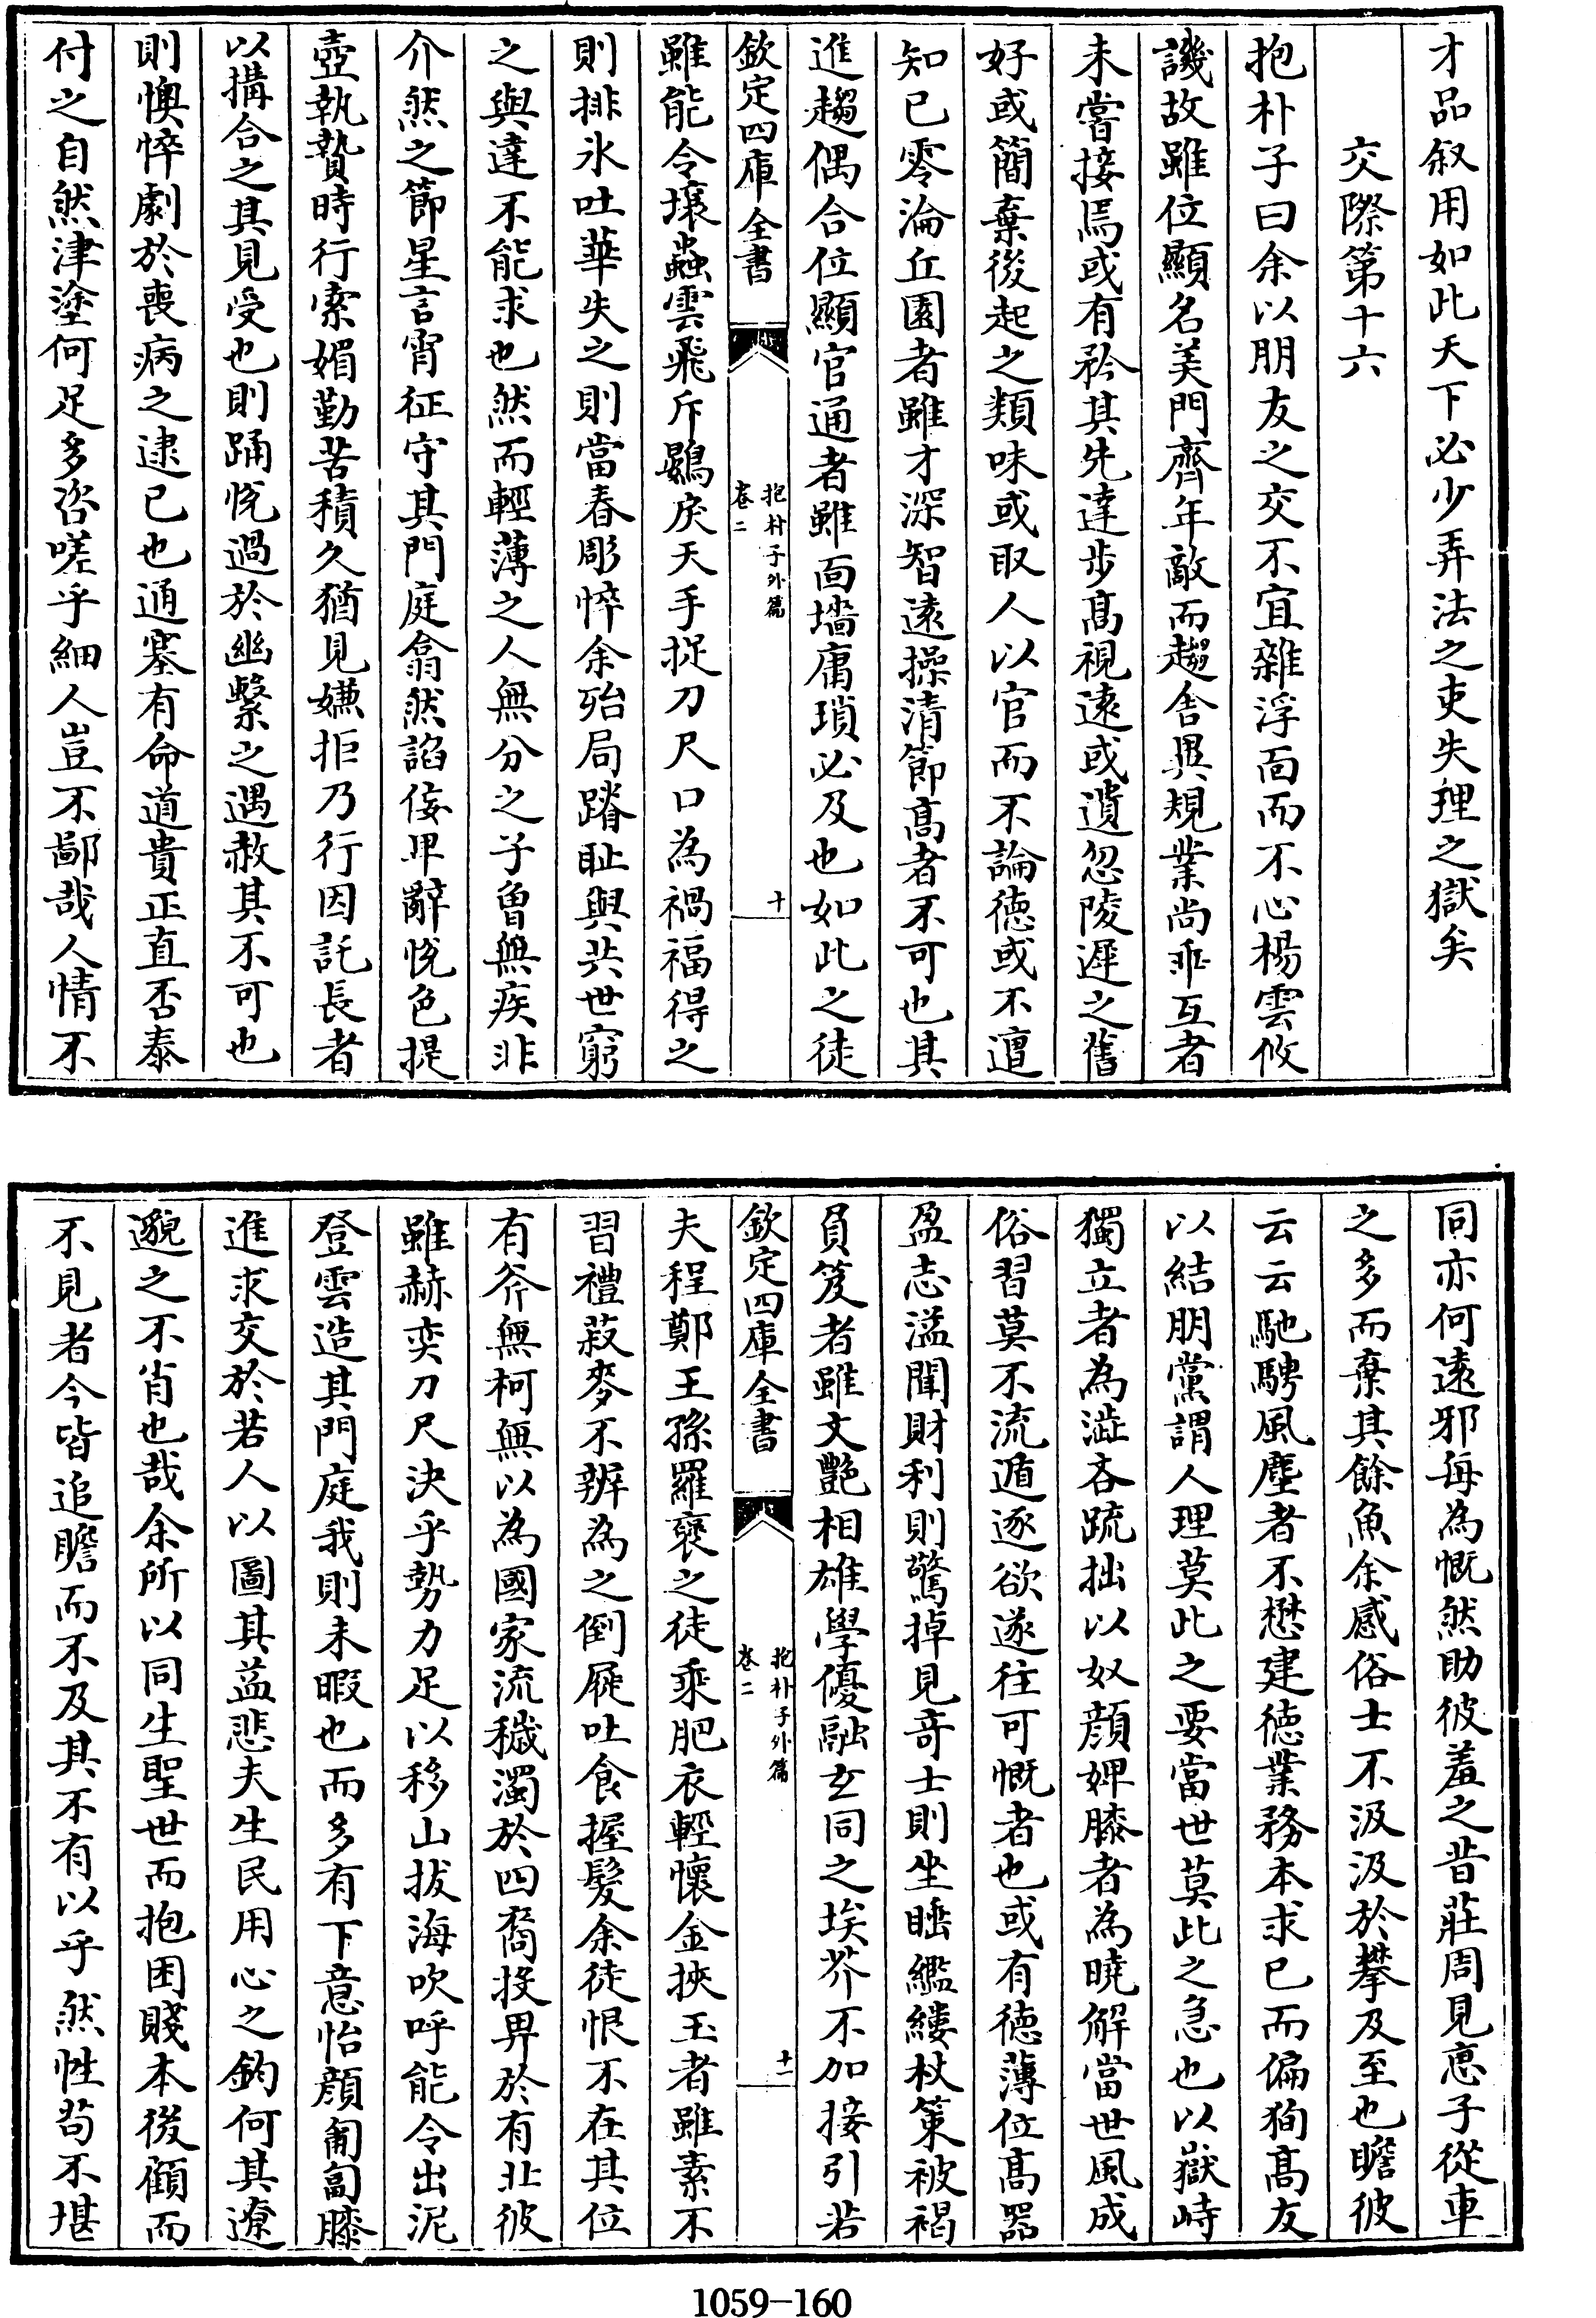 才品叙用如此天下必少弄法之吏失理之獄矣
交際第十六
抱朴子曰余以朋友之交不宜雜浮面而不心楊雲攸
譏故雖位顯名美門齊年敵而趨舍異規業尚乖互者
未嘗接焉或有矜其先達步高視遠或遺忽陵遲之舊
好或簡棄後起之類味或取人以官而不論徳或不遭
知已零淪丘園者雖才深智遠操清節髙者不可也其
進趨偶合位顯官通者雖面墻庸瑣必及也如此之徒
欽定四庫全書
抱朴子外篇
卷二
十
雖能令壤蟲雲飛斥鷃戾天手捉刀尺口為禍福得之
則排氷吐華失之則當春彫悴余殆局蹐耻與共世窮
之與達不能求也然而輕薄之人無分之子曾無疾非
介然之節星言宵征守其門庭翕然諂佞卑辭悅色提
壺執贄時行索媚勤苦積久猶見嫌拒乃行因託長者
以搆合之其見受也則踊悅過於幽繫之遇赦其不可也
則懊悴劇於喪病之逮已也通塞有命道貴正直否泰
付之自然津塗何足多咨嗟乎細人豈不鄙哉人情不
同亦何遠邪每為慨然助彼羞之昔莊周見惠子從車
之多而棄其餘魚余感俗士不汲汲於攀及至也瞻彼
云云馳騁風塵者不懋建徳業務本求已而偏狥髙友
以結朋黨謂人理莫此之要當世莫此之急也以嶽峙
獨立者為澁吝疏拙以奴顔婢膝者為曉解當世風成
俗習莫不流遁逐欲遂往可慨者也或有徳薄位髙器
盈志溢聞財利則驚掉見奇士則坐睡繿縷杖策被褐
負笈者雖文艷相雄學優融玄同之埃芥不加接引若
欽定四庫全書
抱朴子外篇
卷二
十一
夫程鄭王孫羅裒之徒乘肥衣輕懷金挾玉者雖素不
習禮菽麥不辨為之倒屣吐食握髮余徒恨不在其位
有斧無柯無以為國家流穢濁於四裔投畀於有北彼
雖赫奕刀尺決乎勢力足以移山拔海吹呼能令出泥
登雲造其門庭我則未暇也而多有下意怡顔匍匐膝
進求交於若人以圖其益悲夫生民用心之鈞何其遼
邈之不肖也哉余所以同生聖世而抱困賤本後顧而
不見者今皆追瞻而不及其不有以乎然性苟不堪
1059-160